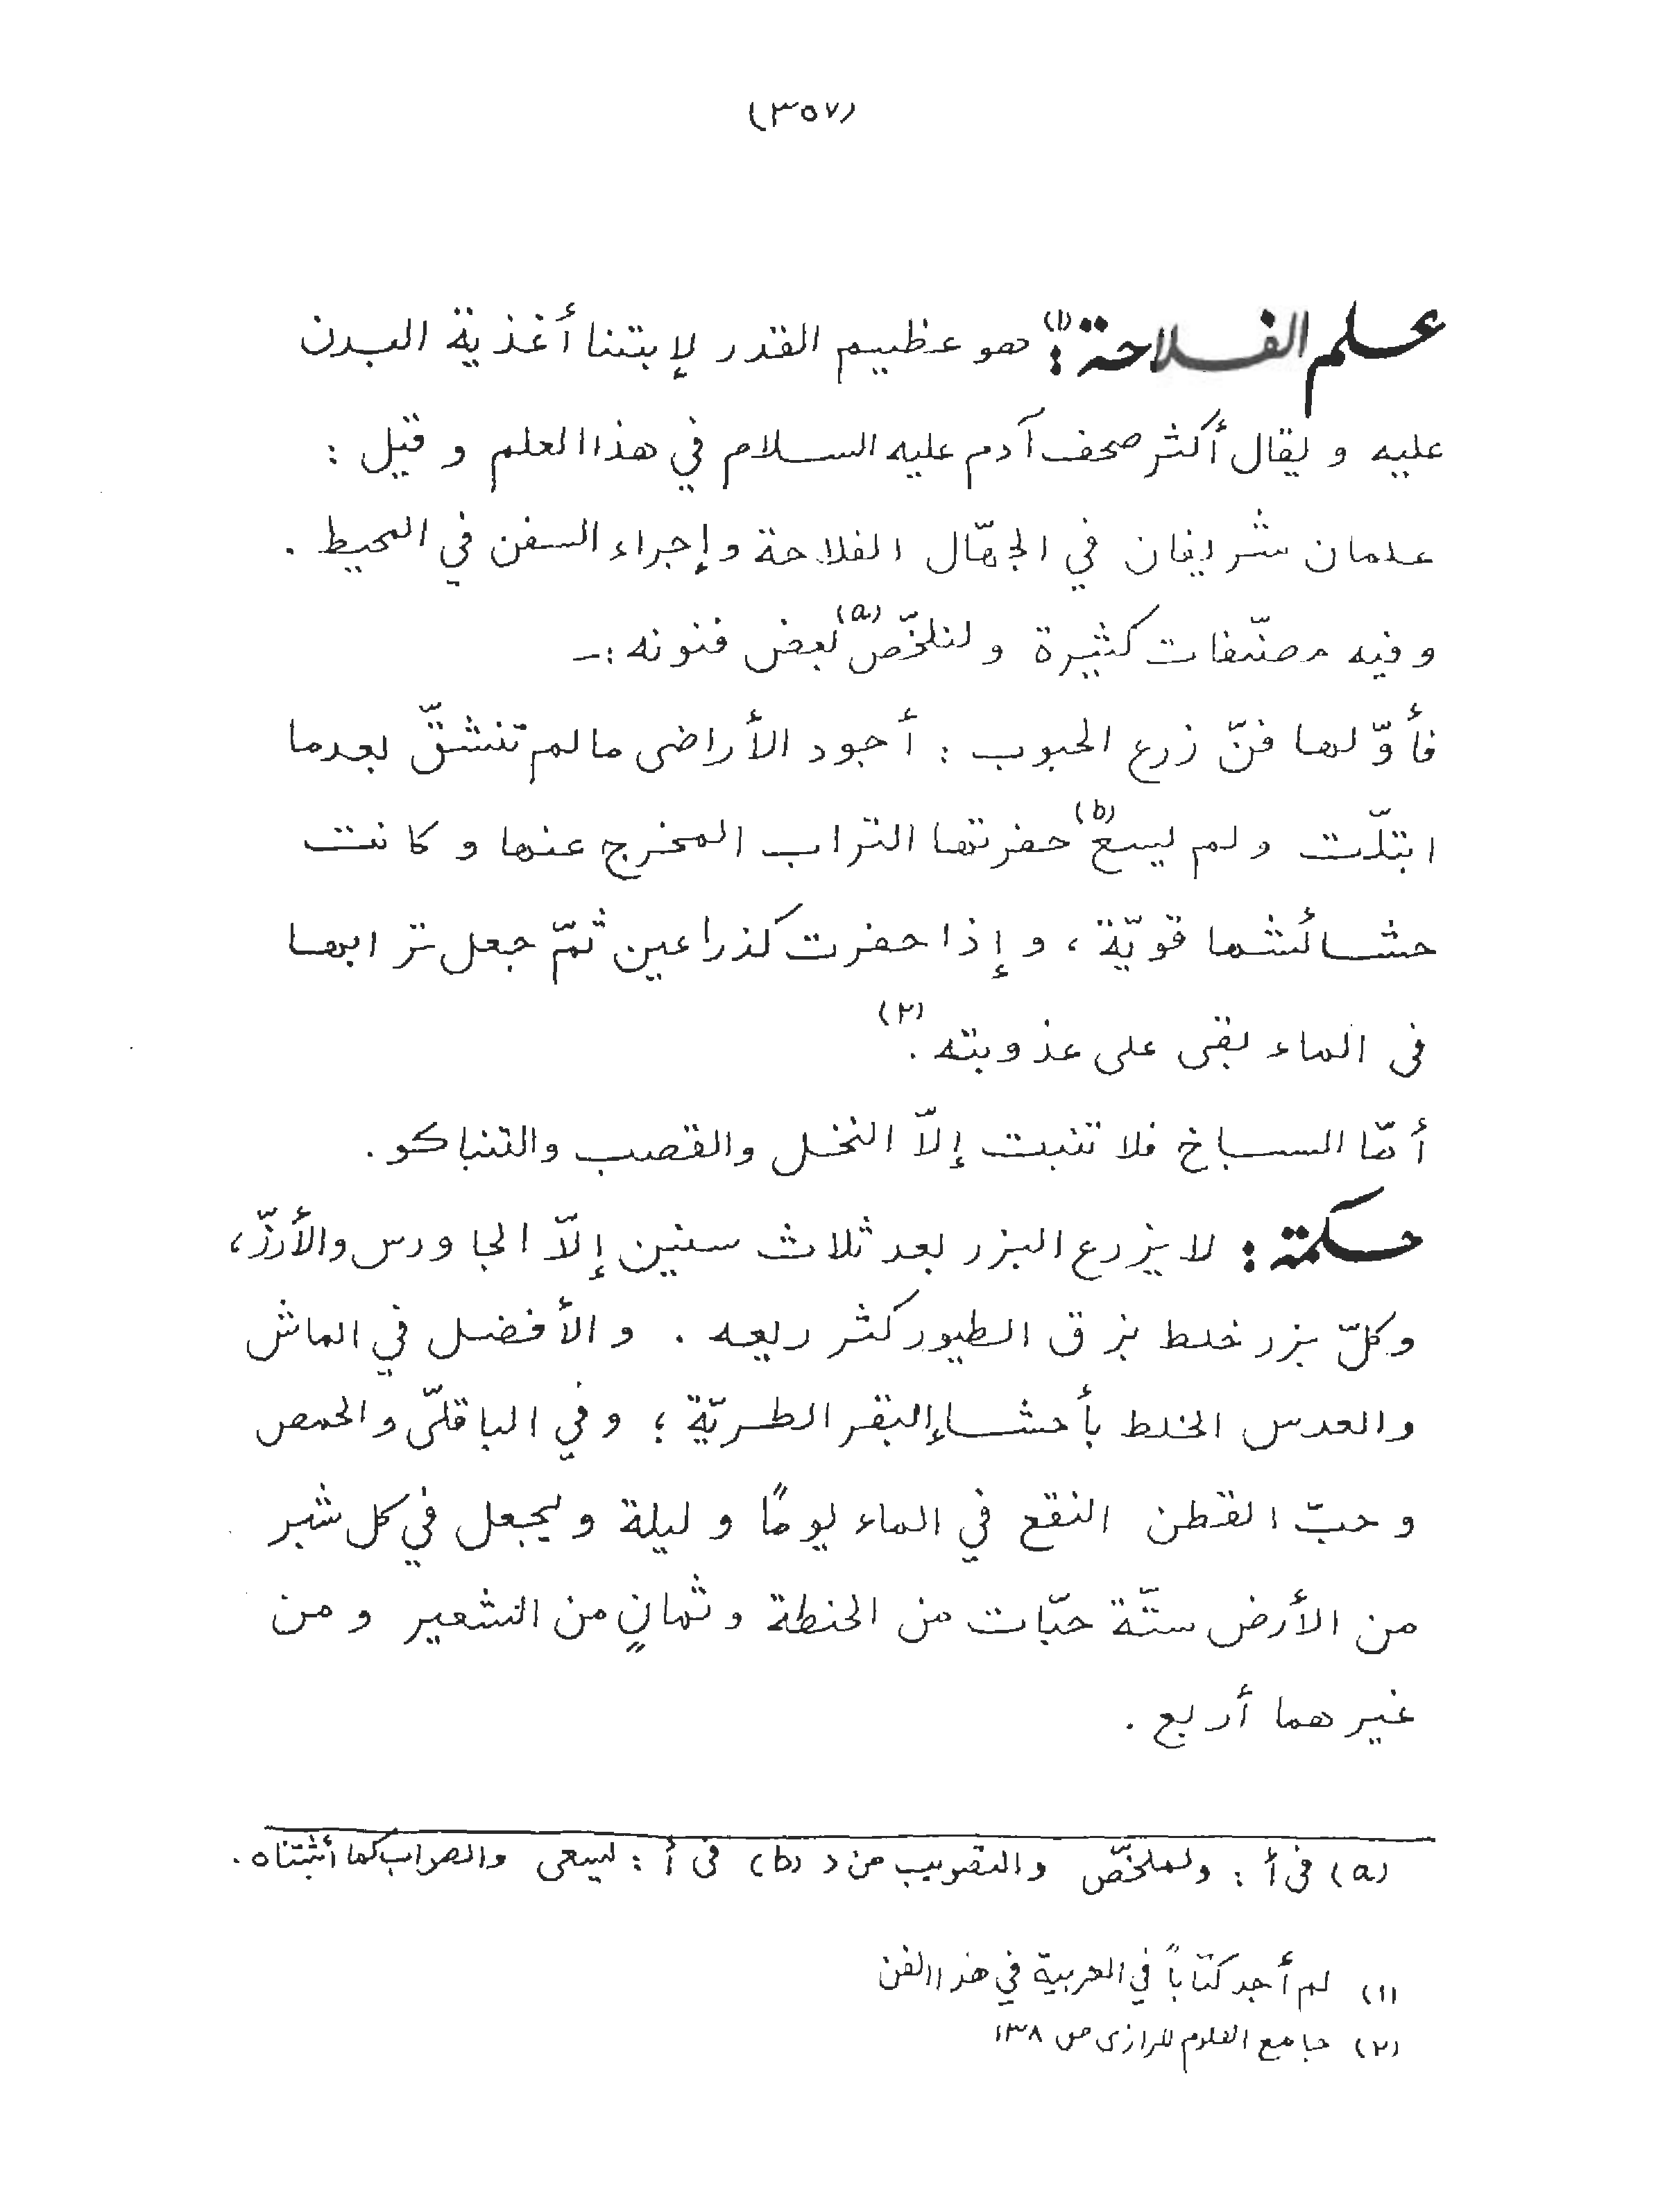 (٣٥٧)
علم الفلاحة(١): هو عظيم القدر لإبتنا أغذية البدن
عليه و يقال أكثر صحف آدم عليه السلام في هذا العلم و قيل :
علمان شريفان في الجهّال الفلاحة و إجراء السفن في المحيط .
و فيه مصنّفات كثيرة و لنلخّص(a) بعض فنونه :ـ
فأوّلها فنّ زرع الحبوب : أجود الأراضى مالم تنشقّ بعدما
ابتلّت و لم يسع(b) حفرتها التراب المخرج عنها و كانت
حشائشها قويّة ، و إذا حفرت كذراعين ثمّ جعل ترابها
فى الماء بقى على عذوبته .(٢)
أمّا السباخ فلا تنبت إلاّ النخل والقصب والتنباكو .
حكمة : لا يزرع البزر بعد ثلاث سنين إلاّ الجاورس والأرزّ ،
وكلّ بزر خلط بزرق الطيور كثر ريعه . و الأفضل في الماش
والعدس الخلط بأحشاإالبقر الطريّة ؛ و في الباقلّى والحمص
و حبّ القطن النقع في الماء يومًا و ليلة و يجعل في كل شبر
من الأرض ستّة حبّات من الحنطة و ثمانٍ من الشعير و من
غيرهما أربع .
(a) فى أ : ولملخّص والتصويب من د (b) فى أ : ليسعى والصراب كما أثبتناه .
(١) لم أجد كتاباً في العربية في هذا الفن
(٢) جامع العلوم للرازى ص ١٣٨